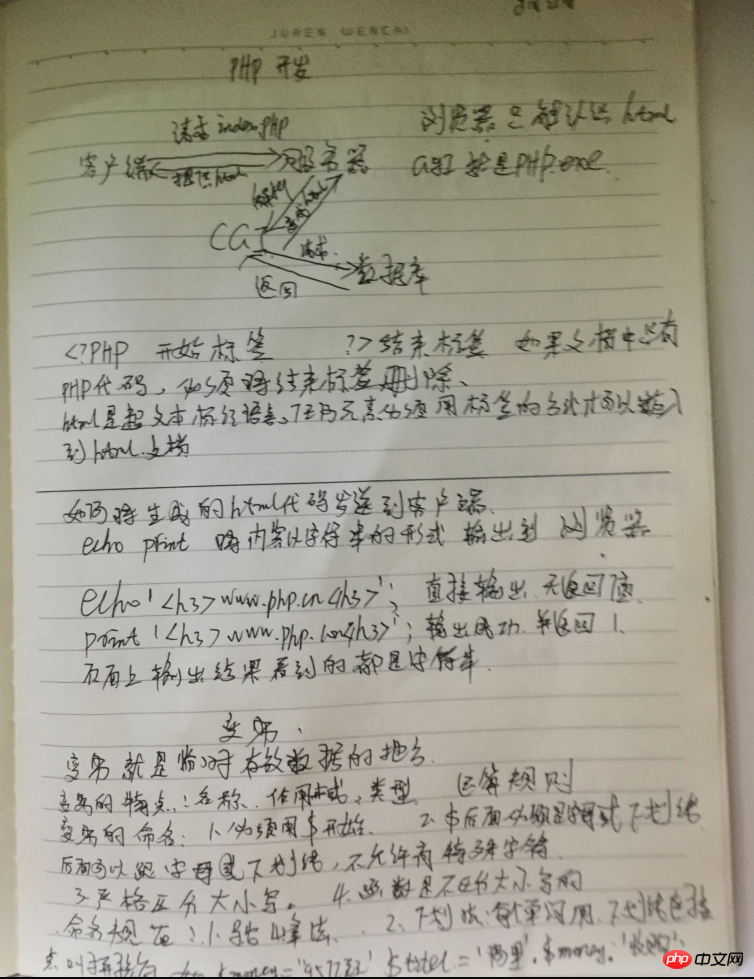 JUREN WENCAI
PHP 开发
请求 index.php
浏览器只能认识 html
客户端 服务器
提供 html
CGI 就是 PHP.exe
CGI
请求
数据库
返回
<?PHP 开始标签 ?>结束标签 如果文档中只有
PHP代码,必须将结束标签删除、
html是超文本标记语言,任何元素必须用标签的方式才可以
到html文档
如何将生成的html代码发送到客户端
echo print 将内容以字符串的形式 输出到 浏览器
echo '<h3>www.php.cn<h3>'; 直接输出 无返回值
print '<h3>www.php.cn<h3>'; 输出成功 并返回 1.
页面上输出结果看到的都是字符串.
变量.
变量就是临时存放数据的地方.
变量的特点:名称、作用域、类型
变量的命名: 1、必须用$开始. 2、$后面必须是字母或下划线
后面可以跟字母或下划线,不允许有特殊字符
3、严格区分大小写。 4、函数是不区分大小写的
命名规范:1、驼峰法. 2、下划法:每个单词用下划线连接
php中文网